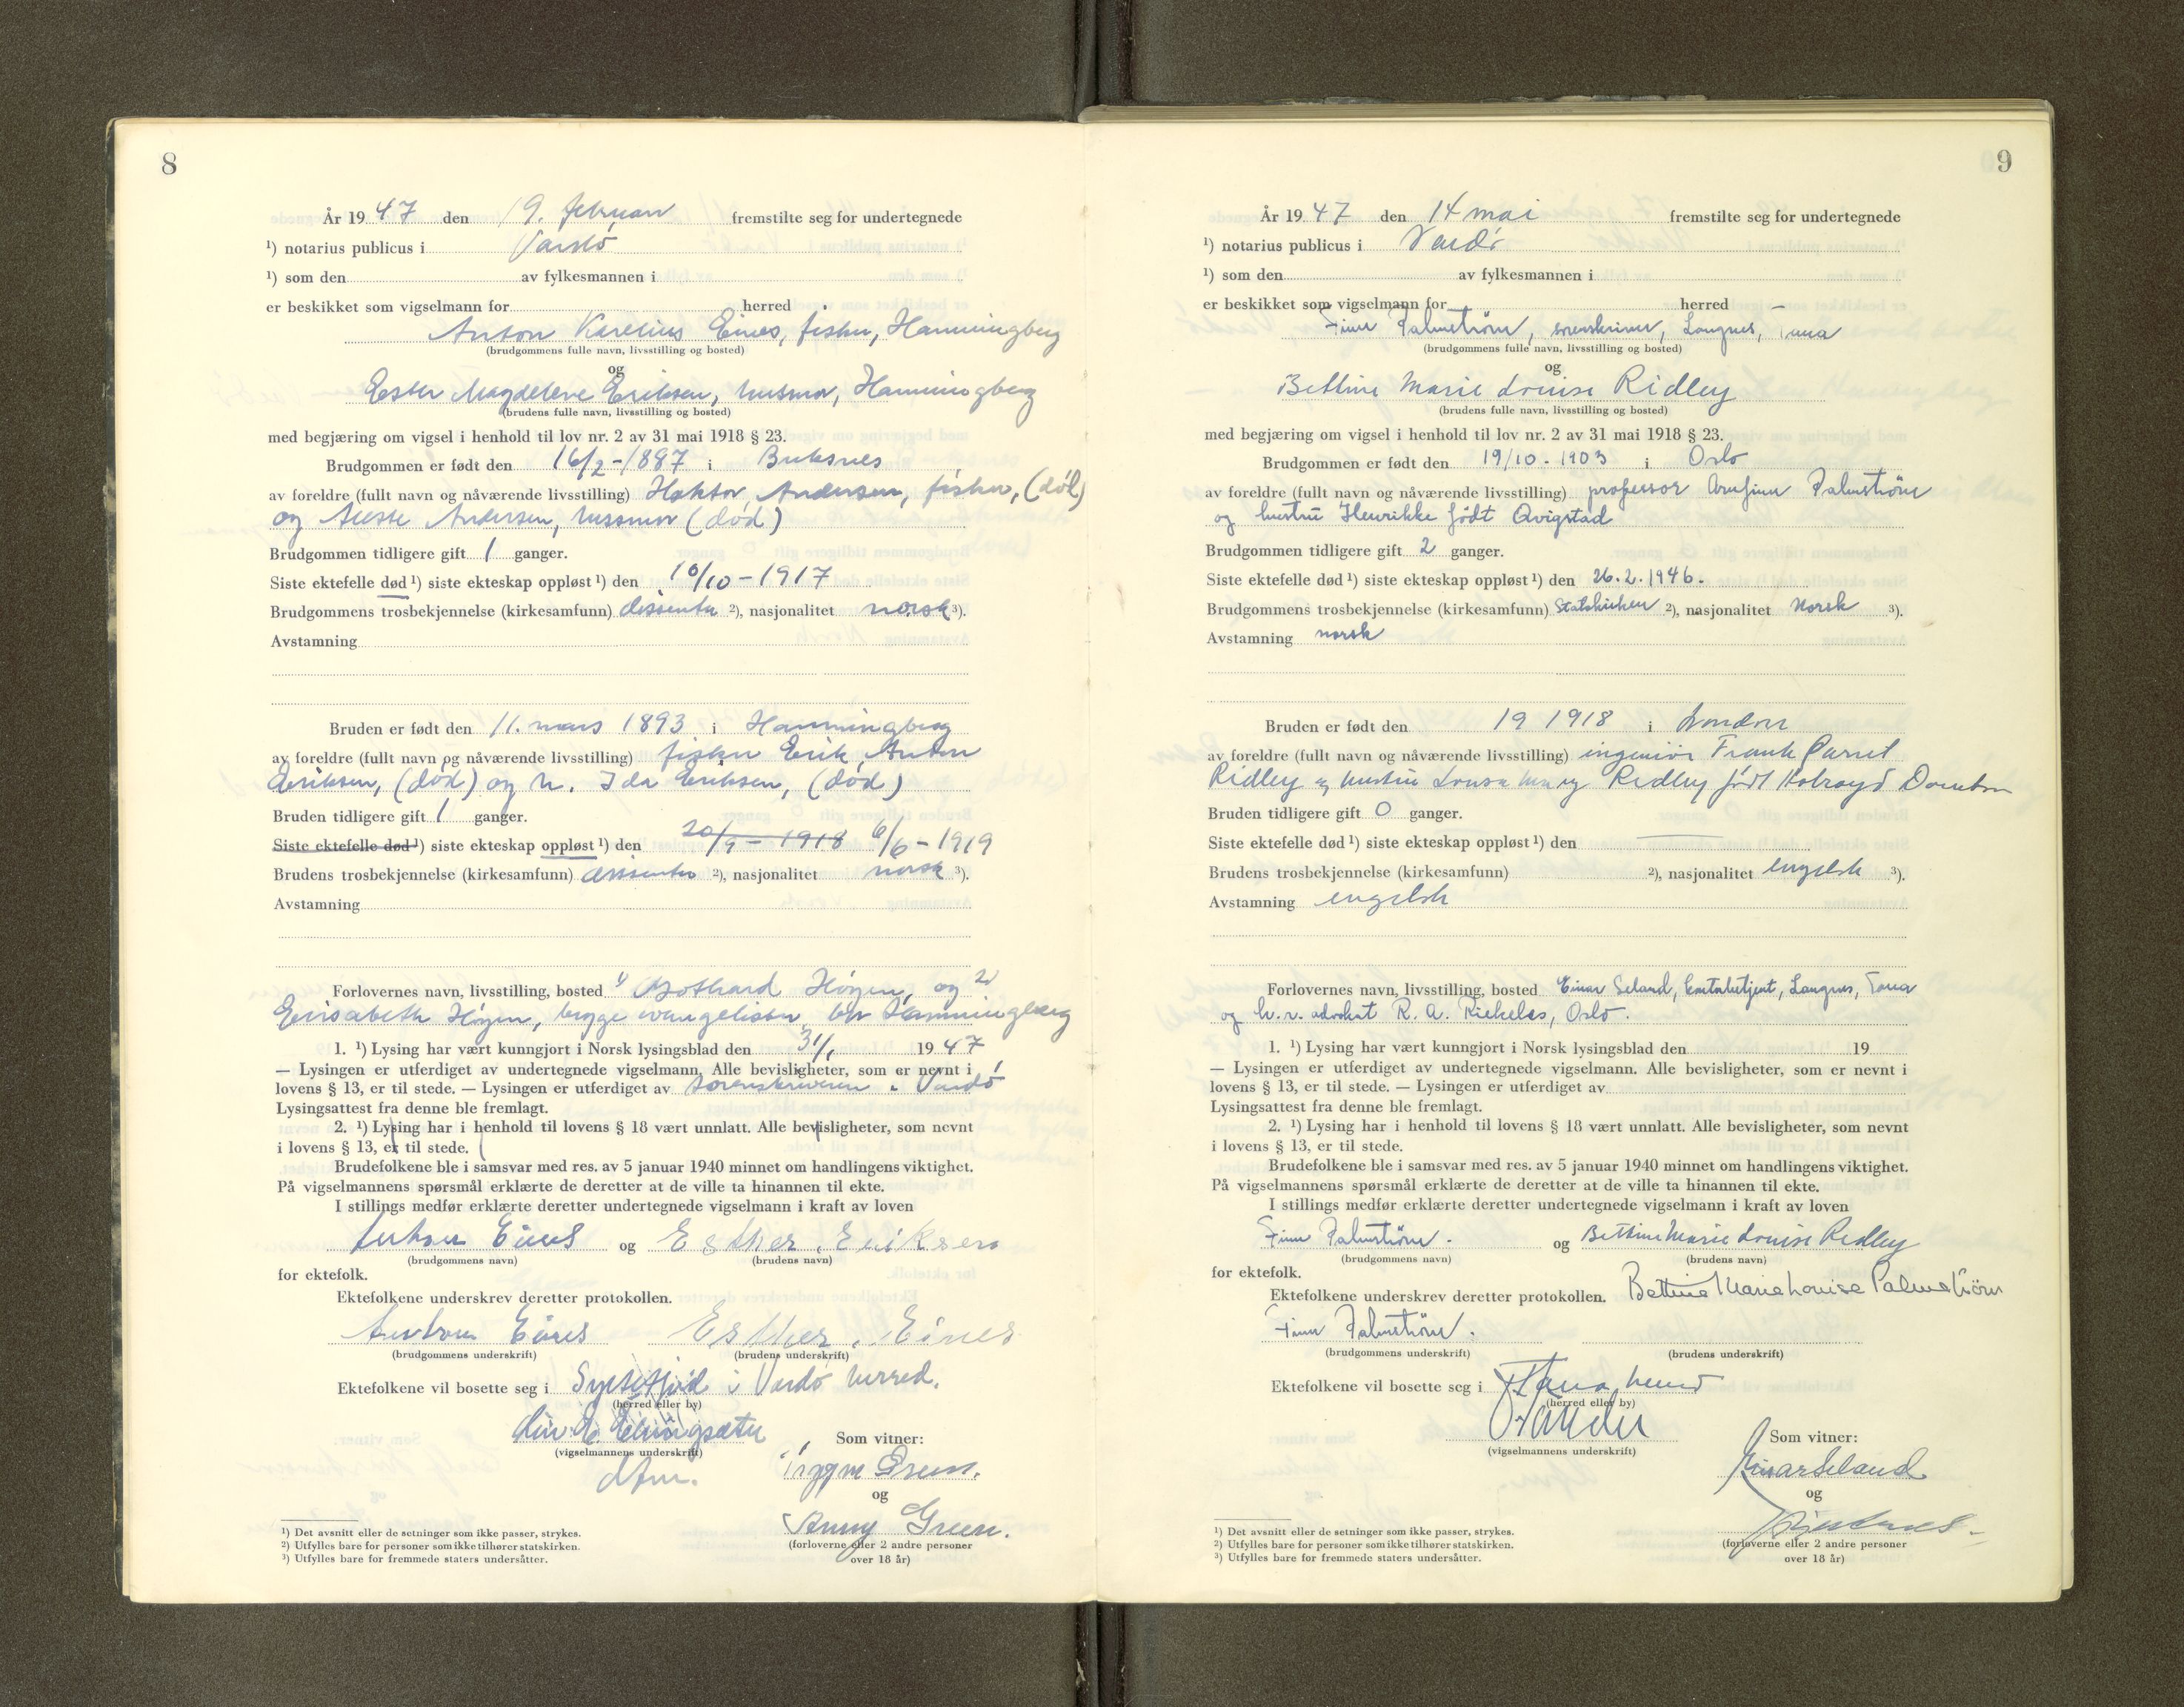 8
År 1947 den 19. februar fremstilte seg for undertegnede
¹) notarius publicus i Vardø
¹) som den av fylkesmannen i
er beskikket som vigselmann for herred
Anton Karelius Eines, fisker, Hamningberg
(brudgommens fulle navn, livsstilling og bosted)
og
Ester Magdelene Eriksen, husmor, Hamningberg
(brudens fulle navn, livsstilling og bosted)
med begjæring om vigsel i henhold til lov nr. 2 av 31 mai 1918 § 23.
Brudgommen er født den 16/2-1887 i Buksnes
av foreldre (fullt navn og nåværende livsstilling) Hektor Andersen, fisker, (død)
og Andersen, husmor (død)
Brudgommen tidligere gift 1 ganger.
Siste ektefelle død ¹) siste ekteskap oppløst ¹) den 10/10-1917
Brudgommens trosbekjennelse (kirkesamfunn) dissenter ²), nasjonalitet norsk ³).
Avstamning
Bruden er født den 11. mars 1893 i Hamningberg
av foreldre (fullt navn og nåværende livsstilling) fisker Erik Anton
Eriksen, (død) og h. Ida Eriksen, (død)
Bruden tidligere gift 1 ganger.
Siste ektefelle død ¹) siste ekteskap oppløst ¹) den 20/9-1918 6/6-1919
Brudens trosbekjennelse (kirkesamfunn) dissenter ²), nasjonalitet norsk ³).
Avstamning
Forlovernes navn, livsstilling, bosted 1) Gothard Høgen, og 2)
Elisabeth Høgen, begge evangelister Hamningberg
1. ¹) Lysing har vært kunngjort i Norsk lysingsblad den 31/1 1947
— Lysingen er utferdiget av undertegnede vigselmann. Alle bevisligheter, som er nevnt i
lovens § 13, er til stede. — Lysingen er utferdiget av sorenskriveren i Vardø
Lysingsattest fra denne ble fremlagt.
2. ¹) Lysing har i henhold til lovens § 18 vært unnlatt. Alle bevisligheter, som nevnt
i lovens § 13, er til stede.
Brudefolkene ble i samsvar med res. av 5 januar 1940 minnet om handlingens viktighet.
På vigselmannens spørsmål erklærte de deretter at de ville ta hinannen til ekte.
I stillings medfør erklærte deretter undertegnede vigselmann i kraft av loven
Anton Eines og Esther Eriksen
(brudgommens navn) (brudens navn)
for ektefolk.
Ektefolkene underskrev deretter protokollen.
Anton Eines Esther Eines
(brudgommens underskrift) (brudens underskrift)
Ektefolkene vil bosette seg i Syltefjord i Vardø herred.
(herred eller by)
(vigselmannens underskrift)
dfm.
Som vitner:
Trygve Green.
og
Anny Green.
(forloverne eller 2 andre personer
over 18 år)
¹) Det avsnitt eller de setninger som ikke passer, strykes.
²) Utfylles bare for personer som ikke tilhører statskirken.
³) Utfylles bare for fremmede staters undersåtter.
9
År 1947 den 14 mai fremstilte seg for undertegnede
¹) notarius publicus i Vardø
¹) som den av fylkesmannen i
er beskikket som vigselmann for herred –
Finn Palmström, sorenskriver, Langnes, Tana
(brudgommens fulle navn, livsstilling og bosted)
og
Bettine Marie Louise Ridley
(brudens fulle navn, livsstilling og bosted)
med begjæring om vigsel i henhold til lov nr. 2 av 31 mai 1918 § 23.
Brudgommen er født den 19/10-1903 i Oslo
av foreldre (fullt navn og nåværende livsstilling) professor Arnfinn Palmström
og hustru Henrikke født Qvigstad
Brudgommen tidligere gift 2 ganger.
Siste ektefelle død ¹) siste ekteskap oppløst ¹) den 26.2.1946.
Brudgommens trosbekjennelse (kirkesamfunn) Statskirken ²), nasjonalitet Norsk ³).
Avstamning norsk
Bruden er født den 19 1918 i London
av foreldre (fullt navn og nåværende livsstilling) ingeniør Frank
Ridley og hustru Louise Mary Ridley født Holroyd
Bruden tidligere gift 0 ganger.
Siste ektefelle død ¹) siste ekteskap oppløst ¹) den
Brudens trosbekjennelse (kirkesamfunn) ²), nasjonalitet engelsk ³).
Avstamning engelsk
Forlovernes navn, livsstilling, bosted Einar Seland, Langnes, Tana
og h.r. advokat R. A. Riekeles, Oslo.
1. ¹) Lysing har vært kunngjort i Norsk lysingsblad den 19
— Lysingen er utferdiget av undertegnede vigselmann. Alle bevisligheter, som er nevnt i
lovens § 13, er til stede. — Lysingen er utferdiget av
Lysingsattest fra denne ble fremlagt.
2. ¹) Lysing har i henhold til lovens § 18 vært unnlatt. Alle bevisligheter, som nevnt
i lovens § 13, er til stede.
Brudefolkene ble i samsvar med res. av 5 januar 1940 minnet om handlingens viktighet.
På vigselmannens spørsmål erklærte de deretter at de ville ta hinannen til ekte.
I stillings medfør erklærte deretter undertegnede vigselmann i kraft av loven
Finn Palmström. og Bettine Marie Louise Ridley
(brudgommens navn) (brudens navn)
for ektefolk.
Ektefolkene underskrev deretter protokollen. Bettine Marie Louise Palmström
Finn Palmström.
(brudgommens underskrift) (brudens underskrift)
Ektefolkene vil bosette seg i Tana herred
(herred eller by)
(vigselmannens underskrift)
Som vitner:
Einar Seland
og
(forloverne eller 2 andre personer
over 18 år)
¹) Det avsnitt eller de setninger som ikke passer, strykes.
²) Utfylles bare for personer som ikke tilhører statskirken.
³) Utfylles bare for fremmede staters undersåtter.